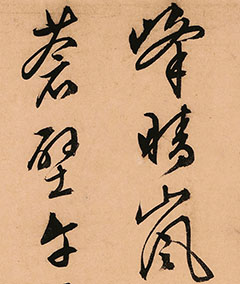 峰晴嵐
蒼壁午